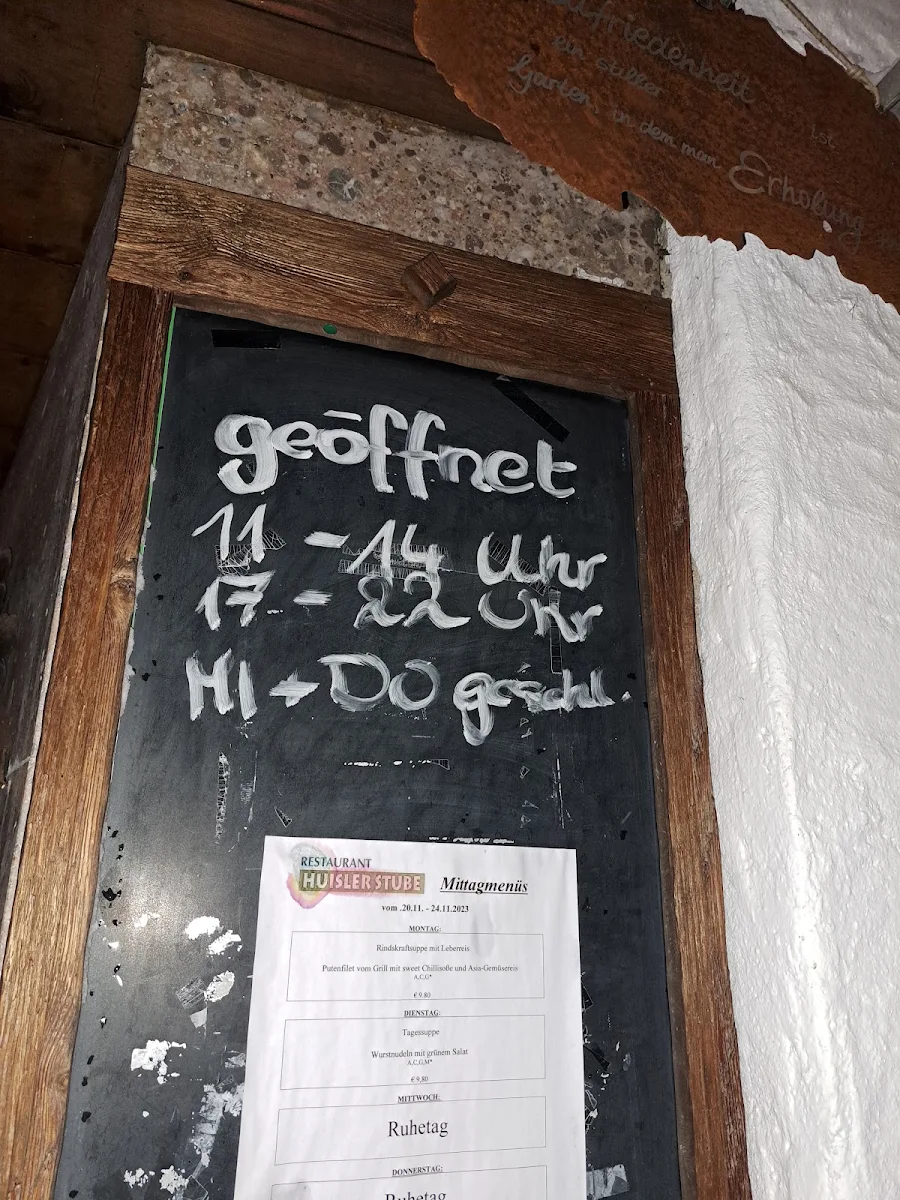 ufriedenheit
ist
ein stiller
Garten, in dem man
Erholung
geöffnet
11 - 14 Uhr
17 - 22 Uhr
MI + DO geschl.
RESTAURANT
HUISLER STUBE
Mittagmenüs
vom .20.11. - 24.11.2023
MONTAG:
Rindskraftsuppe mit Leberreis
Putenfilet vom Grill mit sweet Chillisoße und Asia-Gemüsereis
A,C,G*
€ 9,80
DIENSTAG:
Tagessuppe
Wurstnudeln mit grünem Salat
A,C,G,M*
€ 9,80
MITTWOCH:
Ruhetag
DONNERSTAG:
Ruhetag